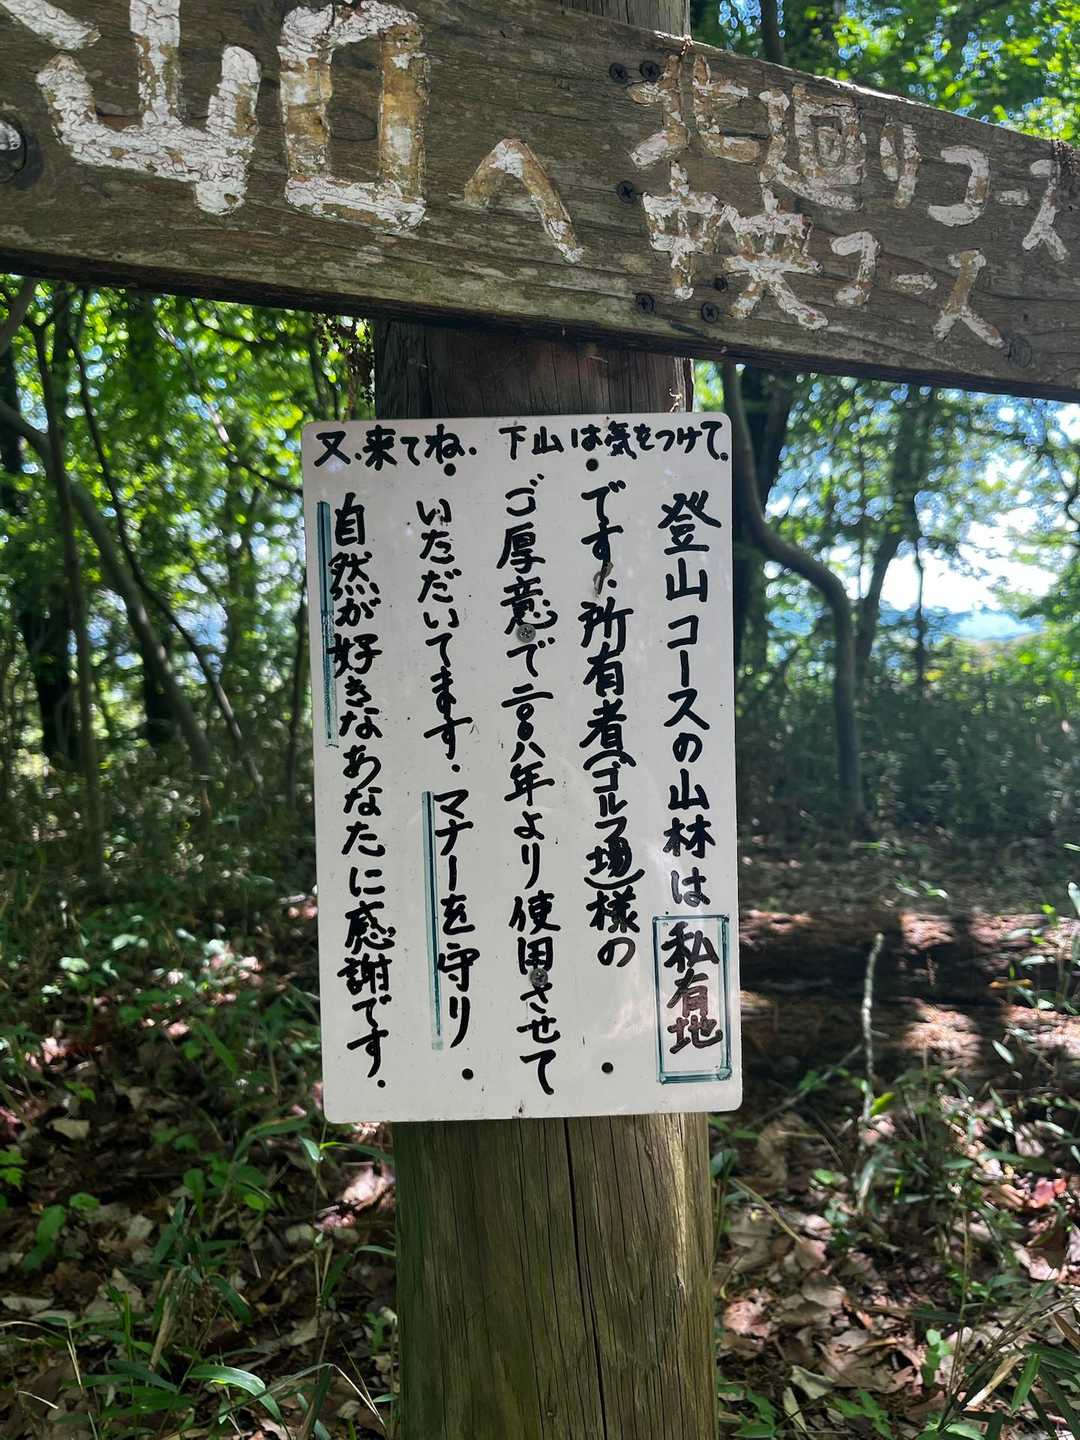 山口へ
北廻りコース
中央コース
又、来てね、下山は気をつけて。
登山コースの山林は私有地
です、所有者(ゴルフ場)様の
ご厚意で二〇〇八年より使用させて
いただいてます、マナーを守り、
自然が好きなあなたに感謝です、